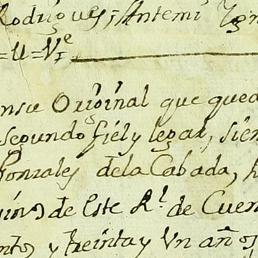 Rodrigues, Antemi
=U=Ve
en su Original que que
segundo, fiel y legal, sien
Gonzales de la Cabada,
de Este Rl. de Cuen
y treinta y Un años